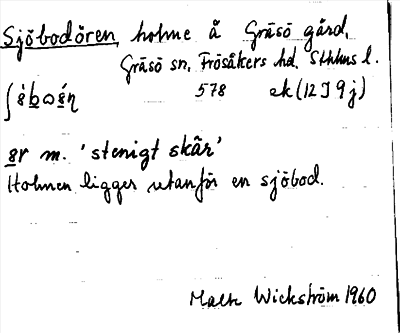 Sjöbodören, holme å Gräsö gård,
Gräsö sn, Frösåkers hd, Sthlms l.
578 ek (12 I 9 j)
ör m. 'stenigt skär'
Holmen ligger utanför en sjöbod.
Wickström 1960